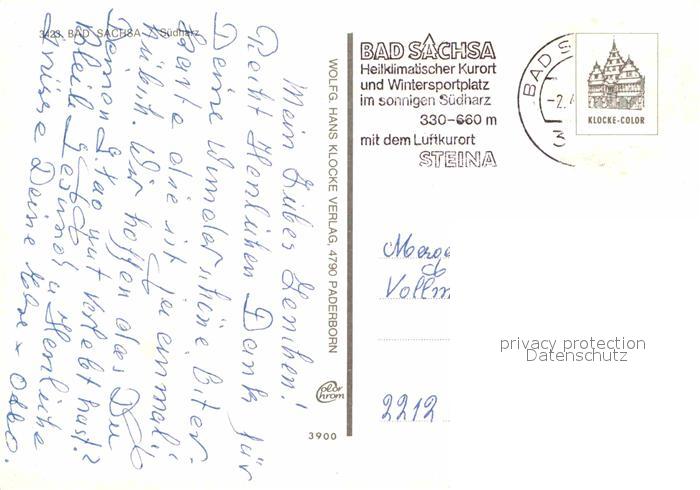 3423 BAD SACHSA / Südharz
Mein Lieber Henchen!
Recht Herzlichen Dank für
Deine wunderschöne
Karte die ist ja einmalig
hübsch. Wir hoffen das Du
Deinen gut verlebt hast?
Bleib gesund u Herzliche
Grüsse Deine
WOLFG. HANS KLOCKE VERLAG, 4790 PADERBORN
color
chrom
3900
BAD SACHSA
Heilklimatischer Kurort
und Wintersportplatz
im sonnigen Südharz
330–660 m
mit dem Luftkurort
STEINA
BAD S
-2.
3
KLOCKE-COLOR
Vollm
2212
privacy protection
Datenschutz